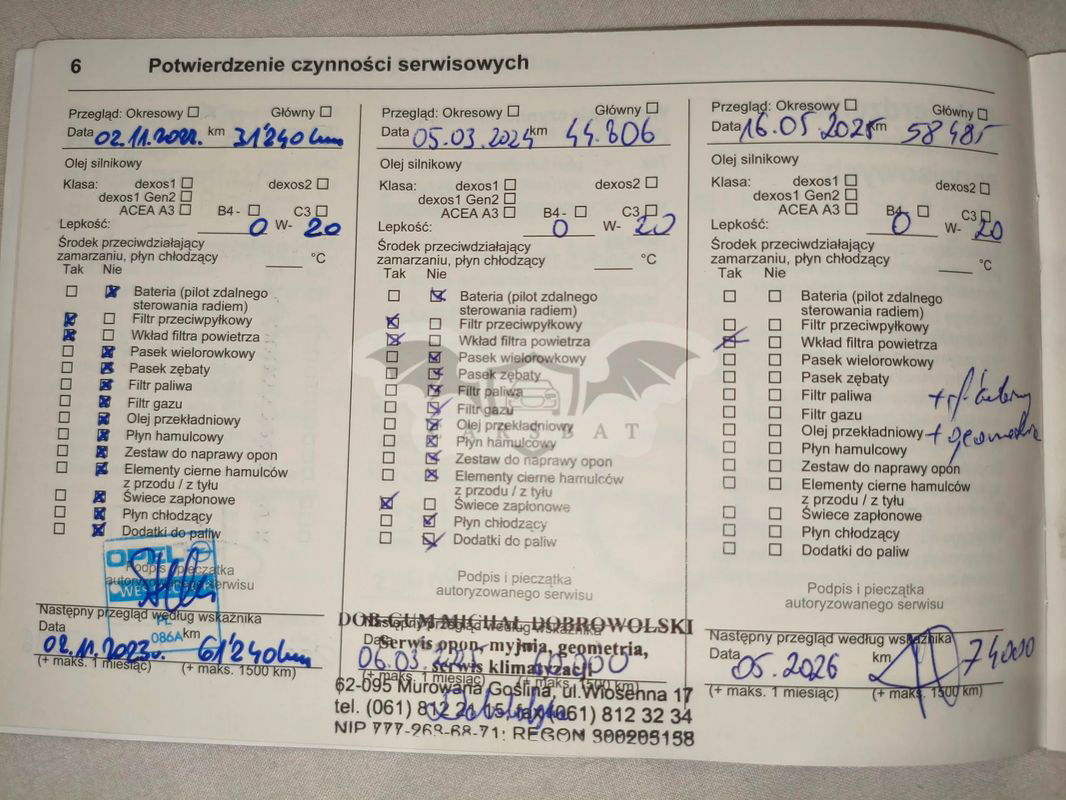 6 Potwierdzenie czynności serwisowych
Przegląd: Okresowy Główny
Data 02.11.2022. km 31'240 km
Olej silnikowy
Klasa: dexos1 dexos2
dexos1 Gen2
ACEA A3 B4 - C3
Lepkość: 0 W- 20
Środek przeciwdziałający
zamarzaniu, płyn chłodzący °C
Tak Nie
Bateria (pilot zdalnego
sterowania radiem)
Filtr przeciwpyłkowy
Wkład filtra powietrza
Pasek wielorowkowy
Pasek zębaty
Filtr paliwa
Filtr gazu
Olej przekładniowy
Płyn hamulcowy
Zestaw do naprawy opon
Elementy cierne hamulców
z przodu / z tyłu
Świece zapłonowe
Płyn chłodzący
Dodatki do paliw
OPEL
Podpis i pieczątka
autoryzowanego serwisu
PL
086A
Następny przegląd według wskaźnika
Data km
02.11.2023r. 61'240 km
(+ maks. 1 miesiąc) (+ maks. 1500 km)
Przegląd: Okresowy Główny
Data 05.03.2024 km 44.806
Olej silnikowy
Klasa: dexos1 dexos2
dexos1 Gen2
ACEA A3 B4 - C3
Lepkość: 0 W- 20
Środek przeciwdziałający
zamarzaniu, płyn chłodzący °C
Tak Nie
Bateria (pilot zdalnego
sterowania radiem)
Filtr przeciwpyłkowy
Wkład filtra powietrza
Pasek wielorowkowy
Pasek zębaty
Filtr paliwa
Filtr gazu
Olej przekładniowy
Płyn hamulcowy
Zestaw do naprawy opon
Elementy cierne hamulców
z przodu / z tyłu
Świece zapłonowe
Płyn chłodzący
Dodatki do paliw
Podpis i pieczątka
autoryzowanego serwisu
DOB-GUM MICHAŁ DOBROWOLSKI
Następny przegląd według wskaźnika
Data
Serwis opon, myjnia, geometria,
serwis klimatyzacji
06.03
(+ maks. 1 miesiąc) (+ maks. 1500 km)
62-095 Murowana Goślina, ul.Wiosenna 17
tel. (061) 812 21 15, fax (061) 812 32 34
NIP 777-263-68-71; REGON 300205158
Przegląd: Okresowy Główny
Data 16.05.2025 km 58485
Olej silnikowy
Klasa: dexos1 dexos2
dexos1 Gen2
ACEA A3 B4 - C3
Lepkość: 0 W- 20
Środek przeciwdziałający
zamarzaniu, płyn chłodzący °C
Tak Nie
Bateria (pilot zdalnego
sterowania radiem)
Filtr przeciwpyłkowy
Wkład filtra powietrza
Pasek wielorowkowy
Pasek zębaty
Filtr paliwa
Filtr gazu
Olej przekładniowy + geometria
Płyn hamulcowy
Zestaw do naprawy opon
Elementy cierne hamulców
z przodu / z tyłu
Świece zapłonowe
Płyn chłodzący
Dodatki do paliw
Podpis i pieczątka
autoryzowanego serwisu
Następny przegląd według wskaźnika
Data 05.2026 km 74000
(+ maks. 1 miesiąc) (+ maks. 1500 km)
ARSBAT